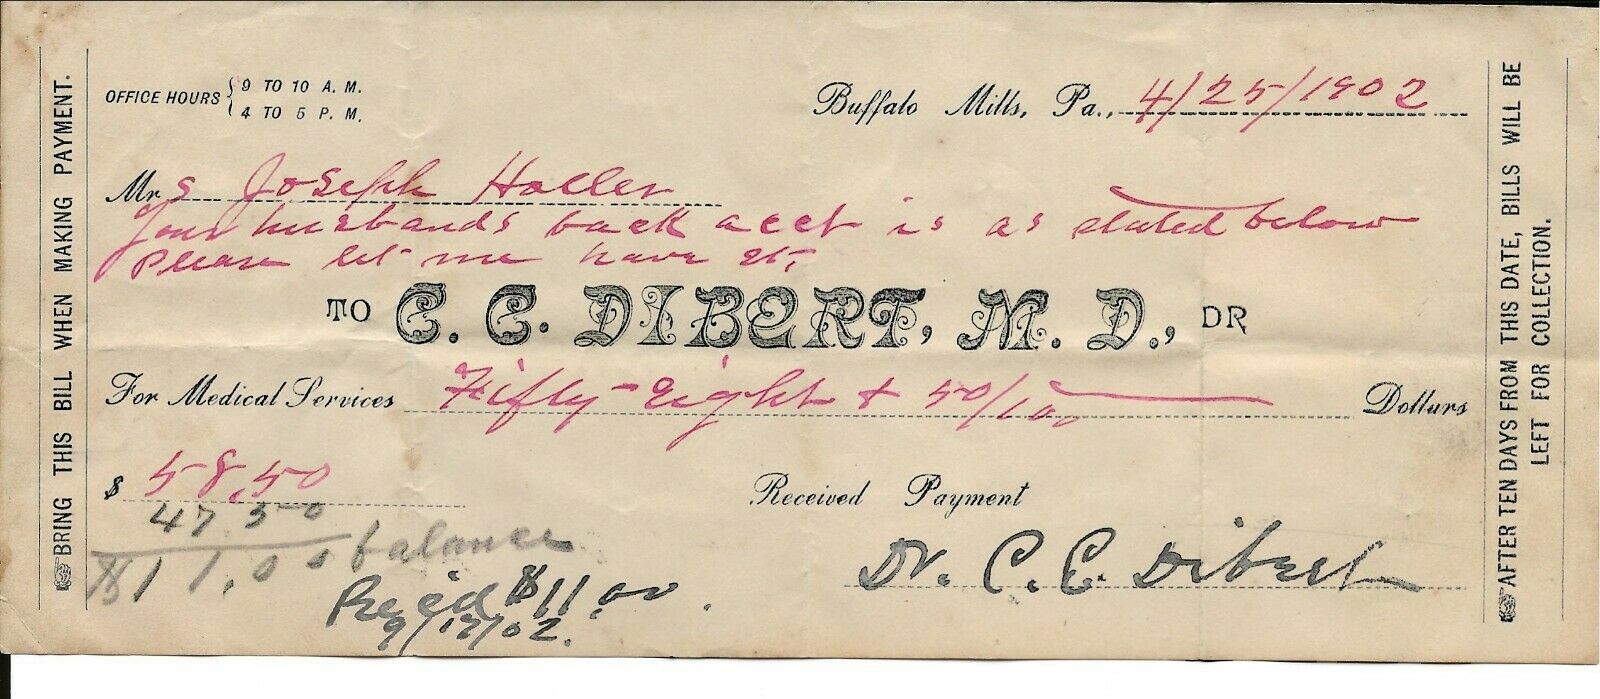 BRING THIS BILL WHEN MAKING PAYMENT.
OFFICE HOURS { 9 TO 10 A. M.
4 TO 5 P. M.
Buffalo Mills, Pa., 4/25/1902
Mrs Joseph Holler
Your husbands back acct is as stated below
Please let me have it.
TO C. C. DIBERT, M. D., DR
For Medical Services Fifty-eight + 50/100 Dollars
$ 58.50
47 50
$11.00 balance
Received Payment
Dr. C. C. Dibert
Rec'd $11.00.
9/17/02.
AFTER TEN DAYS FROM THIS DATE, BILLS WILL BE
LEFT FOR COLLECTION.